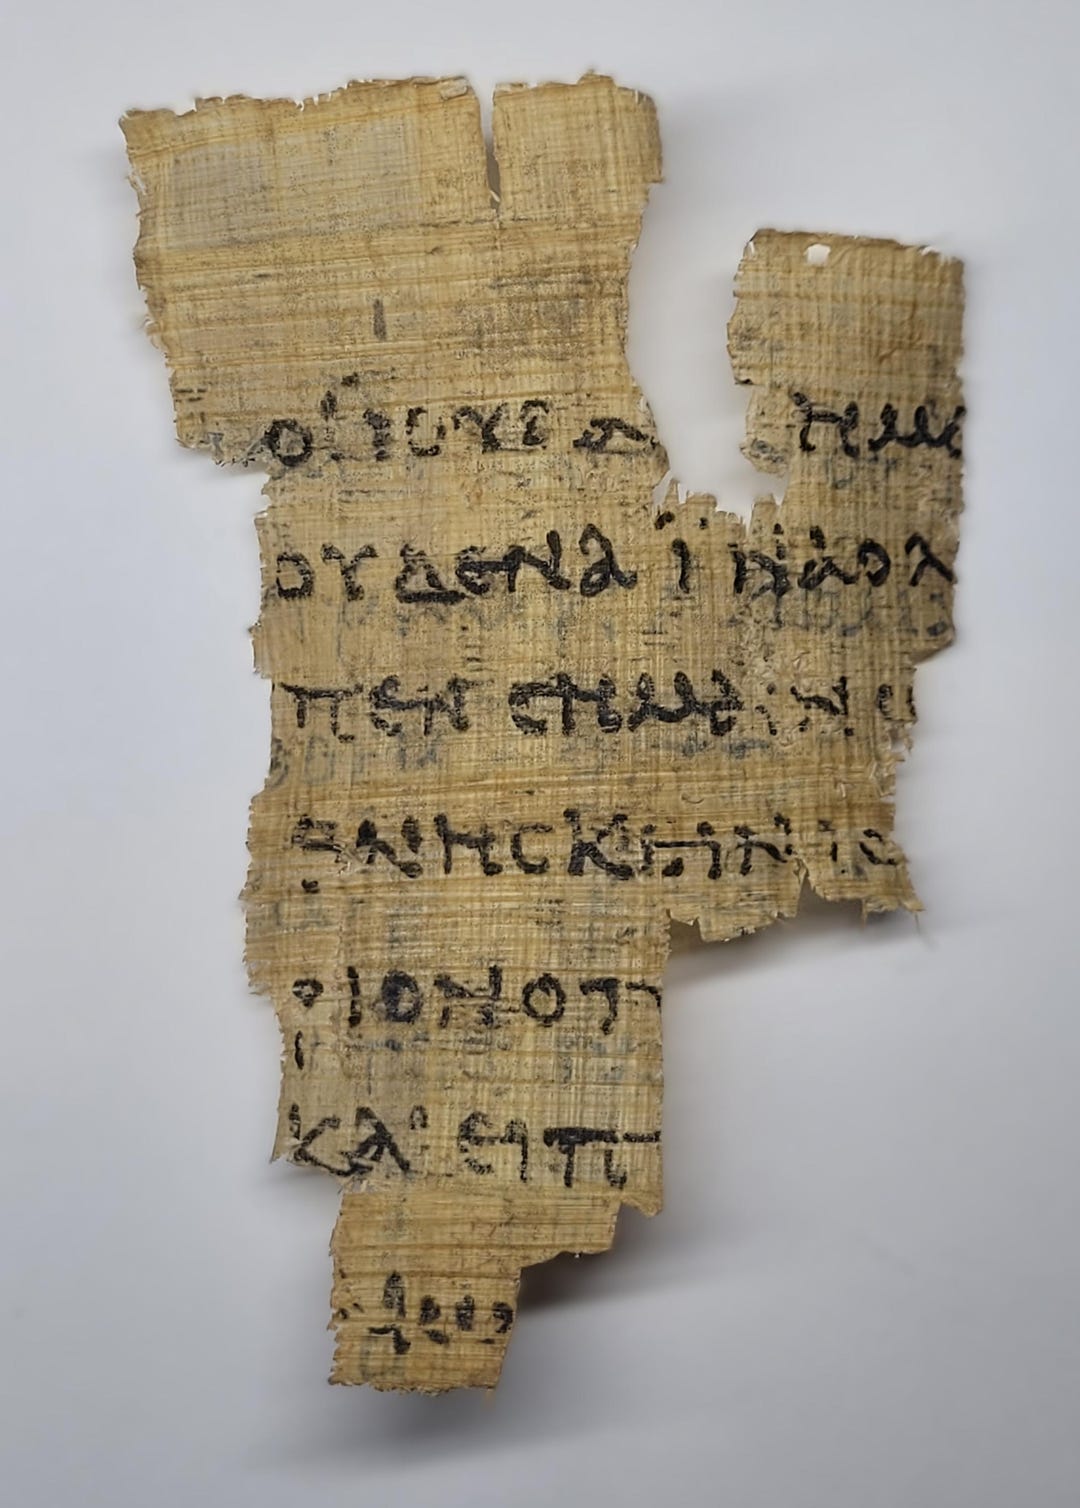 ΟΙ ΙΟΥΔΑ ΗΜΕ
ΟΥΔΕΝΑ ΙΝΑ Ο Λ
ΠΕΝ ϹΗΜΑΙΝΩ
ΘΝΗϹΚΕΙΝ ΙϹ
ΡΙΟΝ Ο Π
ΚΑΙ ΕΙΠ